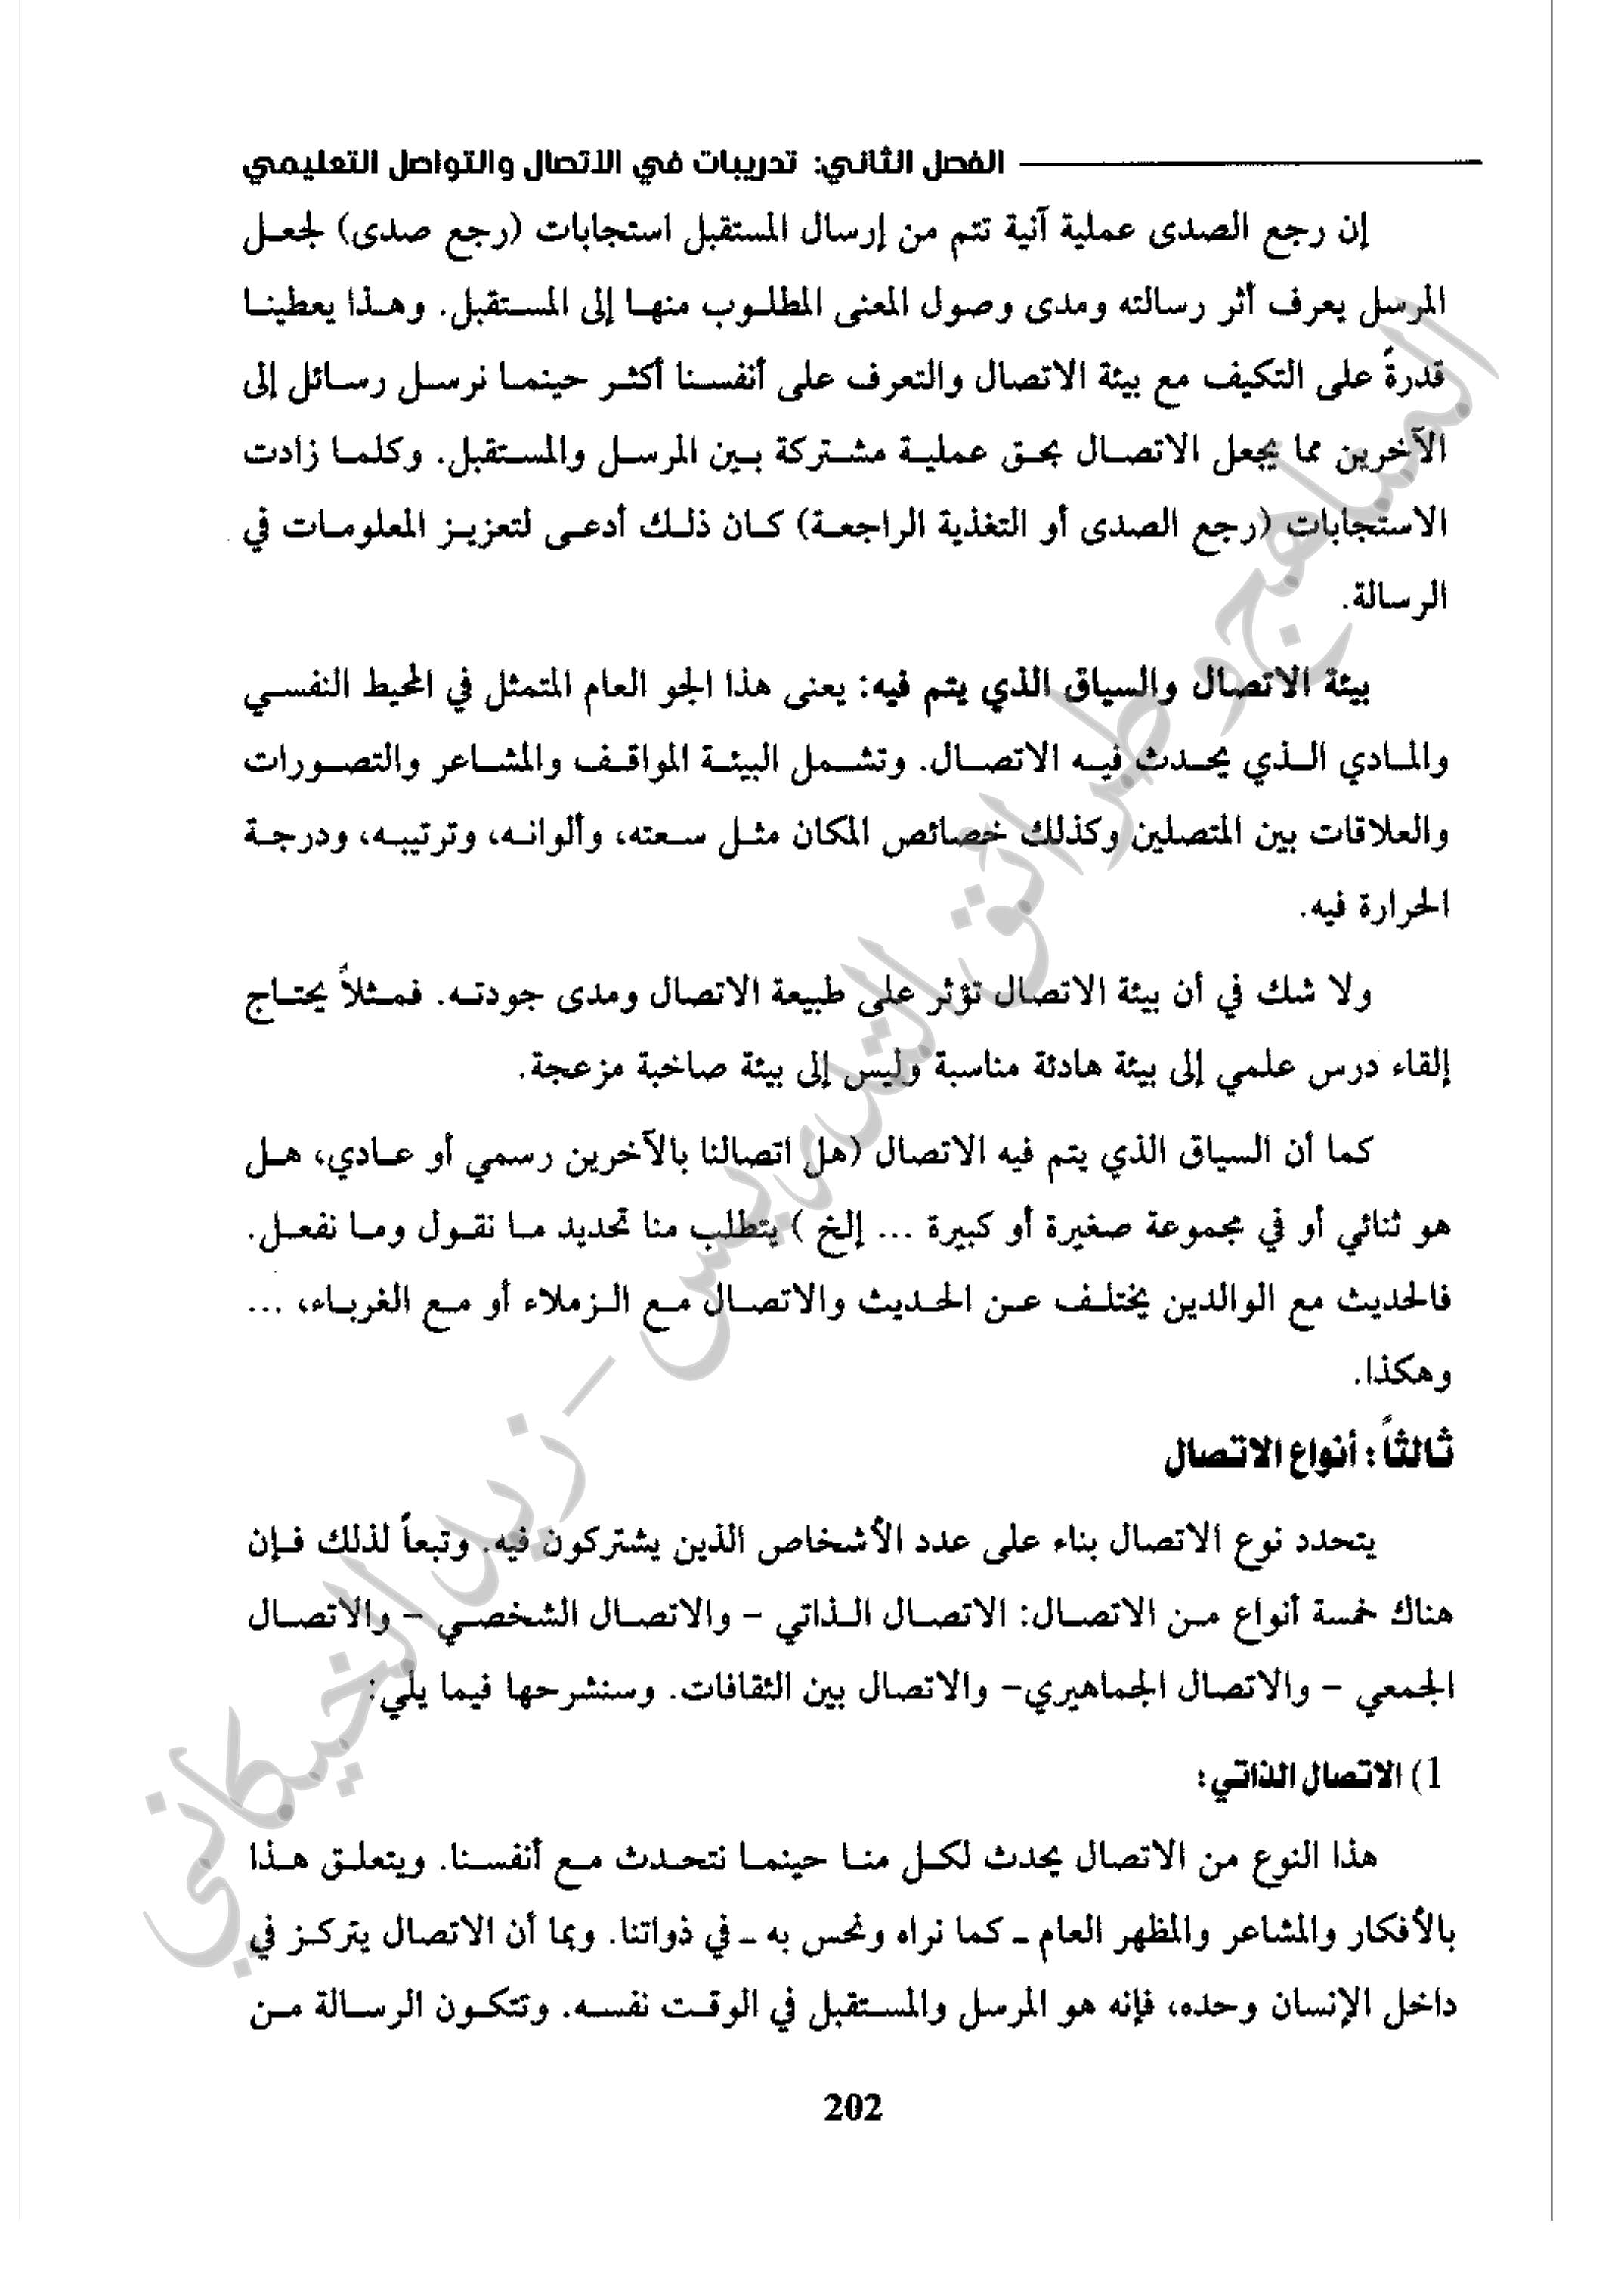 الفصل الثاني: تدريبات في الاتصال والتواصل التعليمي
إن رجع الصدى عملية آنية تتم من إرسال المستقبل استجابات (رجع صدى) لجعل
المرسل يعرف أثر رسالته ومدى وصول المعنى المطلوب منها إلى المستقبل. وهذا يعطينا
قدرةً على التكيف مع بيئة الاتصال والتعرف على أنفسنا أكثر حينما نرسل رسائل إلى
الآخرين مما يجعل الاتصال بحق عملية مشتركة بين المرسل والمستقبل. وكلما زادت
الاستجابات (رجع الصدى أو التغذية الراجعة) كان ذلك أدعى لتعزيز المعلومات في
الرسالة.
بيئة الاتصال والسياق الذي يتم فيه: يعنى هذا الجو العام المتمثل في المحيط النفسي
والمادي الذي يحدث فيه الاتصال. وتشمل البيئة المواقف والمشاعر والتصورات
والعلاقات بين المتصلين وكذلك خصائص المكان مثل سعته، وألوانه، وترتيبه، ودرجة
الحرارة فيه.
ولا شك في أن بيئة الاتصال تؤثر على طبيعة الاتصال ومدى جودته. فمثلاً يحتاج
إلقاء درس علمي إلى بيئة هادئة مناسبة وليس إلى بيئة صاخبة مزعجة.
كما أن السياق الذي يتم فيه الاتصال (هل اتصالنا بالآخرين رسمي أو عادي، هل
هو ثنائي أو في مجموعة صغيرة أو كبيرة ... إلخ ) يتطلب منا تحديد ما نقول وما نفعل.
فالحديث مع الوالدين يختلف عن الحديث والاتصال مع الزملاء أو مع الغرباء، ...
وهكذا.
ثالثاً: أنواع الاتصال
يتحدد نوع الاتصال بناء على عدد الأشخاص الذين يشتركون فيه. وتبعاً لذلك فإن
هناك خمسة أنواع من الاتصال: الاتصال الذاتي – والاتصال الشخصي – والاتصال
الجمعي – والاتصال الجماهيري– والاتصال بين الثقافات. وسنشرحها فيما يلي:
1) الاتصال الذاتي:
هذا النوع من الاتصال يحدث لكل منا حينما نتحدث مع أنفسنا. ويتعلق هذا
بالأفكار والمشاعر والمظهر العام ـ كما نراه ونحس به ـ في ذواتنا. وبما أن الاتصال يتركز في
داخل الإنسان وحده، فإنه هو المرسل والمستقبل في الوقت نفسه. وتتكون الرسالة من
202
المناهج وطرائق التدريس – زيد الخيكاني